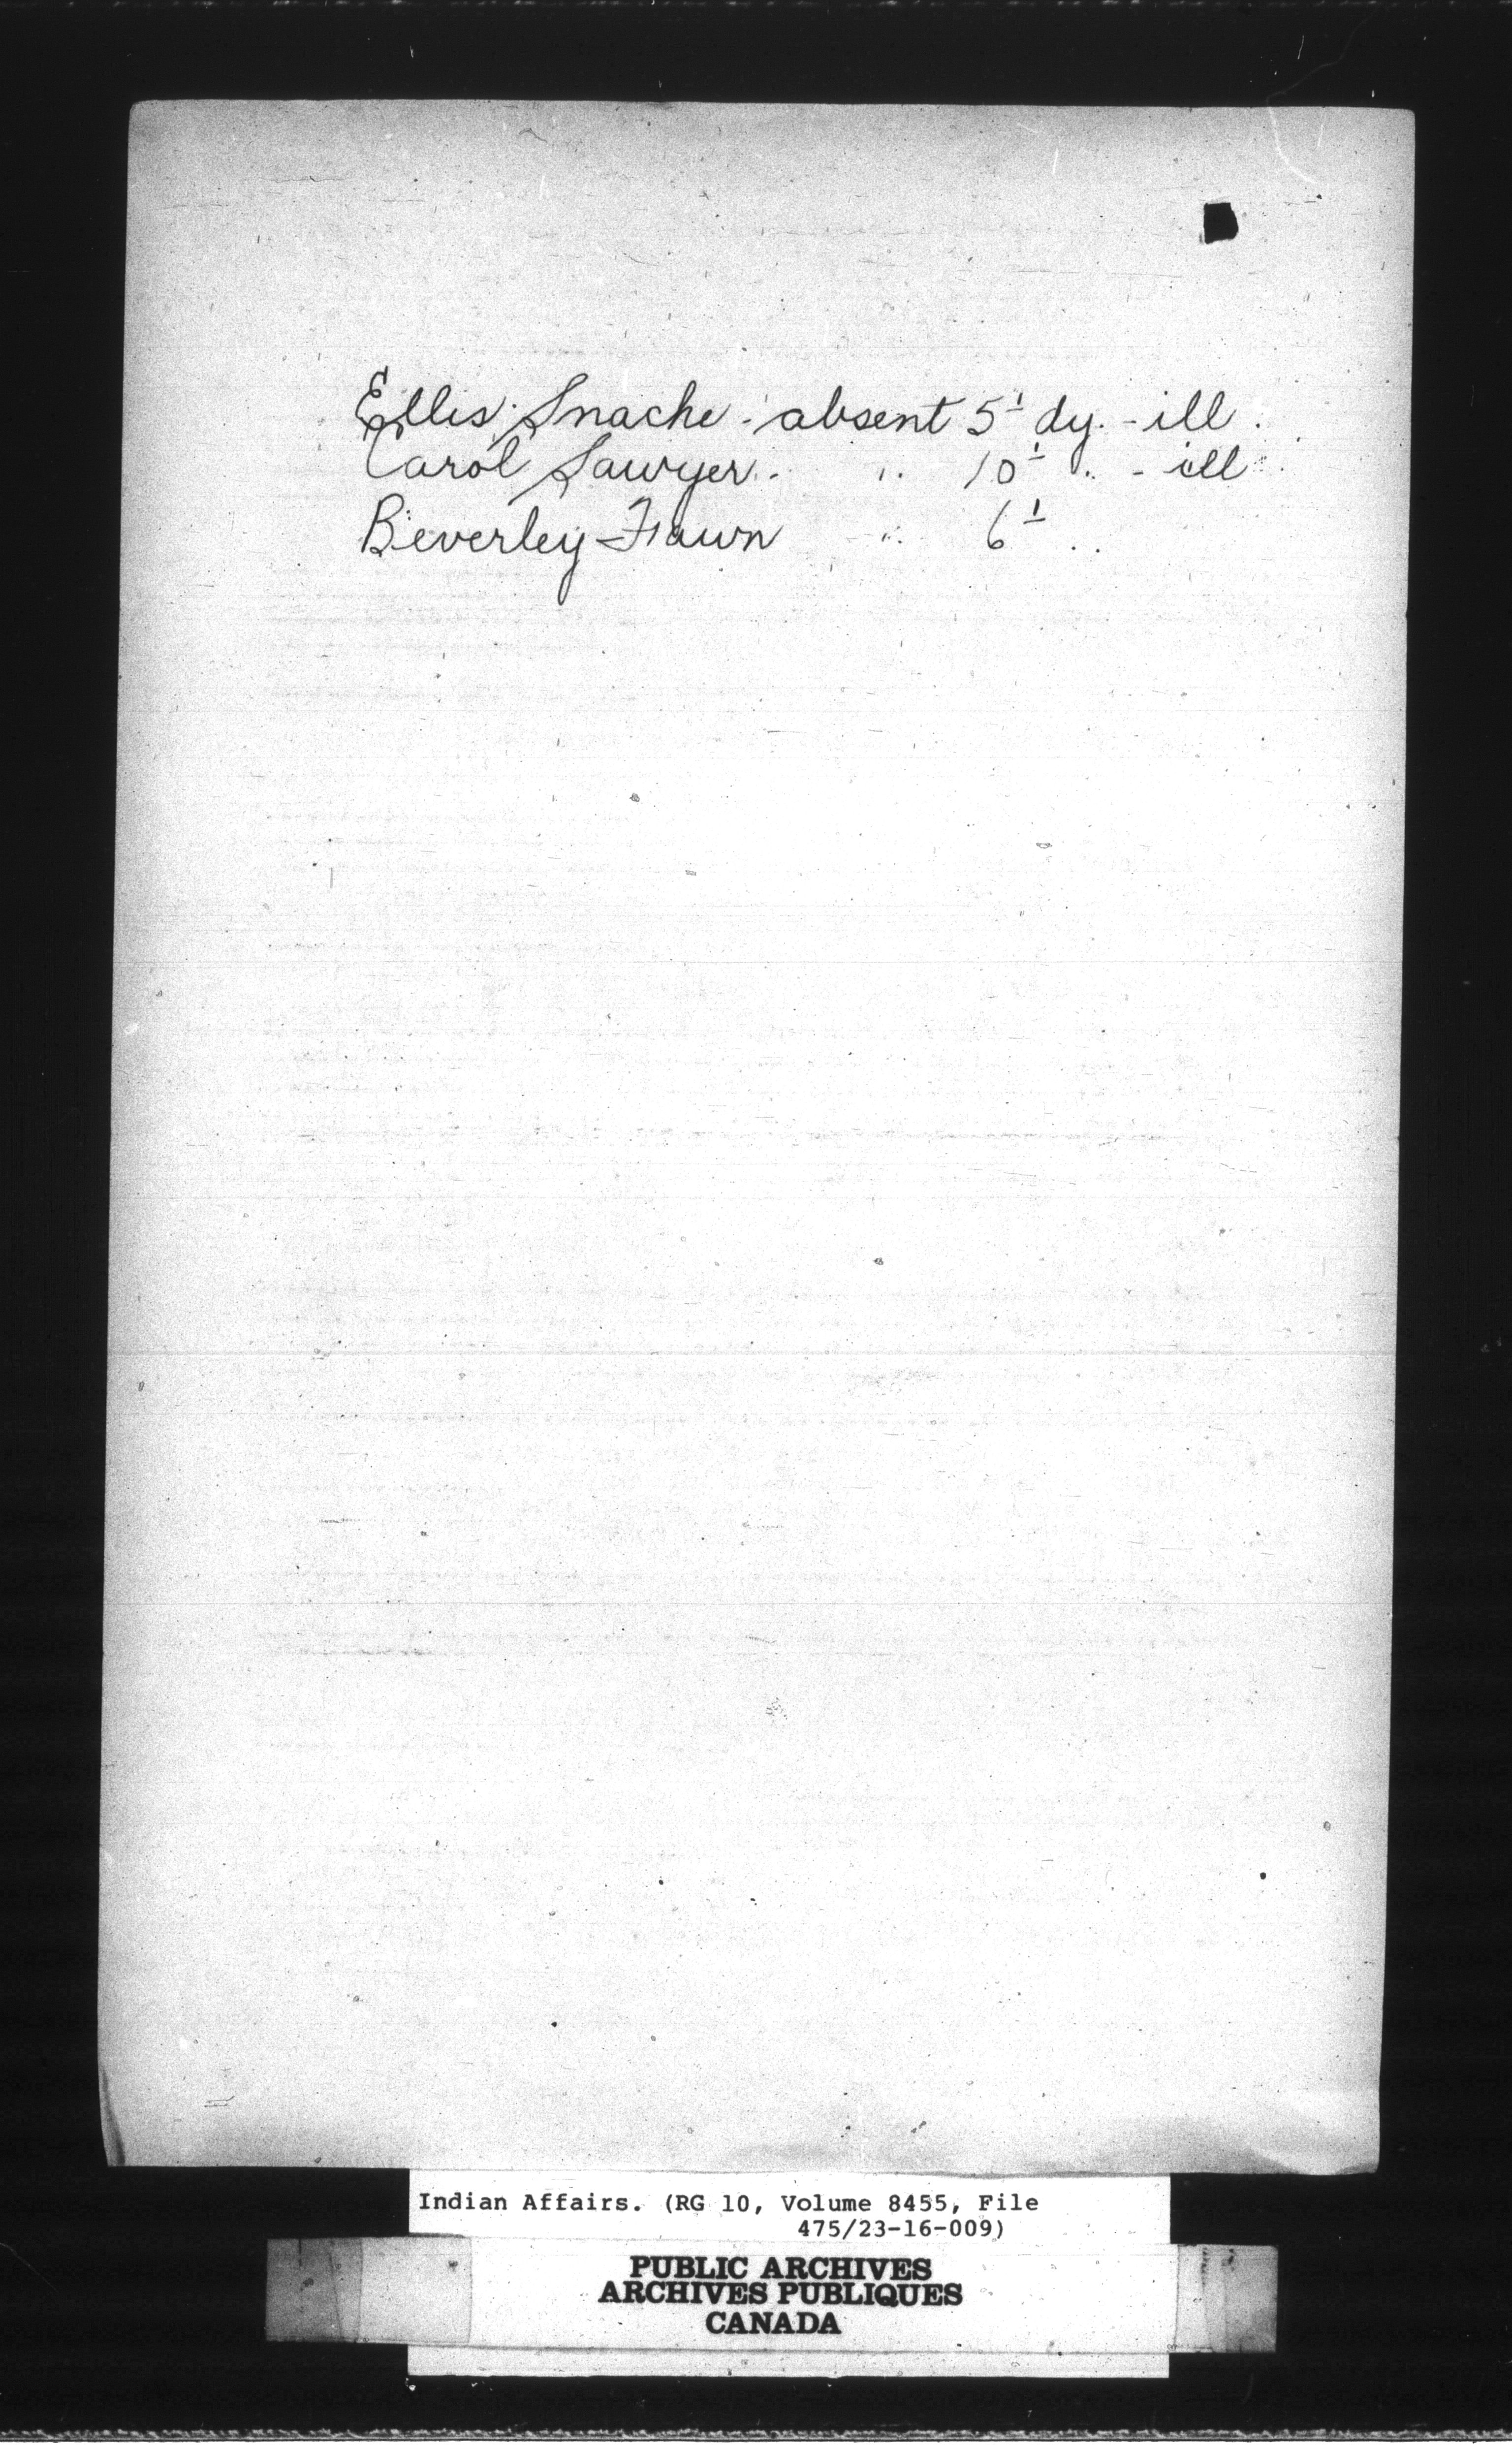 Ellis Snache - absent 5 1 dy. - ill.
Carol Sawyer - " 10 1 " - ill.
Beverley Fawn " 6 1 "
Indian Affairs. (RG 10, Volume 8455, File
475/23-16-009)
PUBLIC ARCHIVES
ARCHIVES PUBLIQUES
CANADA